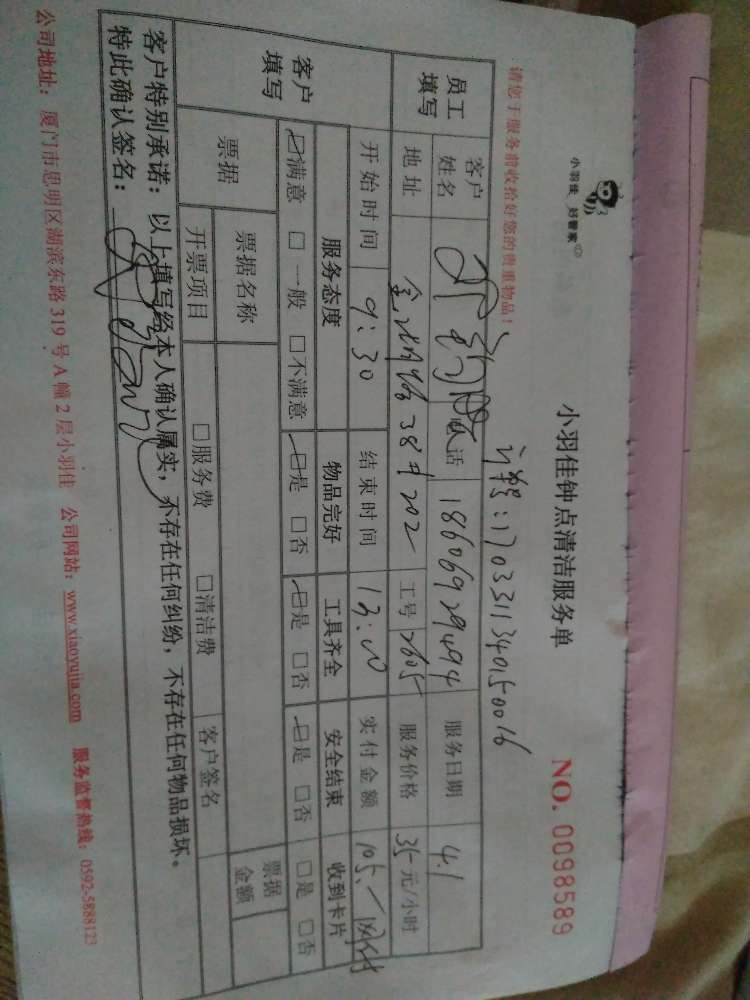 小羽佳 好管家
小羽佳钟点清洁服务单
NO. 0098589
请您于服务前收给好您的贵重物品!
订单:1703311340150016
员工填写 客户姓名 电话 18606929494 服务日期 4.1
地址 38# 202 工号 2605 服务价格 35元/小时
开始时间 9:30 结束时间 13:00 实付金额 105.-
客户填写 服务态度 物品完好 工具齐全 安全结束 收到卡片
☑满意 □一般 □不满意 ☑是 □否 ☑是 □否 ☑是 □否 □是 □否
票据 票据名称 票据金额
开票项目 □服务费 □清洁费 客户签名
客户特别承诺:以上填写经本人确认属实,不存在任何纠纷,不存在任何物品损坏。
特此确认签名:
公司地址:厦门市思明区湖滨东路319号A幢2层小羽佳 公司网站:www.xiaoyujia.com 服务监督热线:0592-5888123